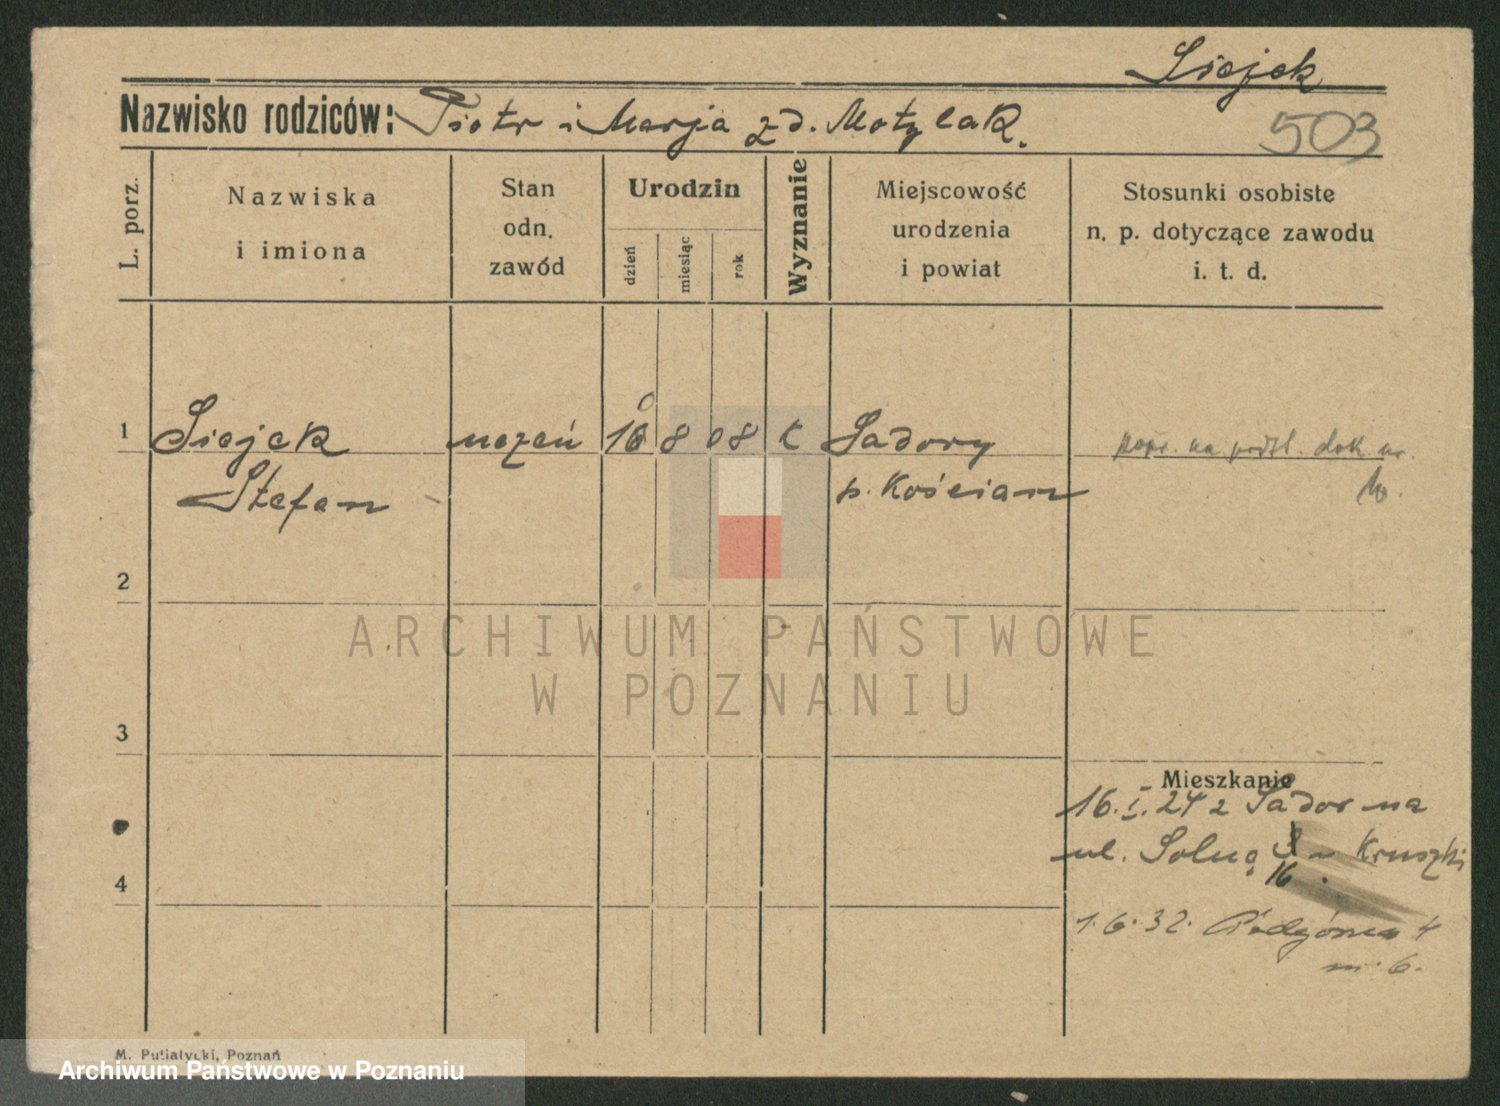 Siejek
Nazwisko rodziców: Piotr i Marja z d. Motylak.
503
L. porz.
Nazwiska
i imiona
Stan
odn.
zawód
Urodzin
dzień
miesiąc
rok
Wyznanie
Miejscowość
urodzenia
i powiat
Stosunki osobiste
n. p. dotyczące zawodu
i. t. d.
1 Siejek uczeń 16 8 08 k Sadory
Stefan p. Kościan
popr. na podst. dok
2
3
4
Mieszkanie
16.I.24 z Sador na
ul. Solną Kruszki
16
1.6.32. Podgórna 4
m. 6.
ARCHIWUM PAŃSTWOWE
W POZNANIU
M. Putiatycki, Poznań
Archiwum Państwowe w Poznaniu